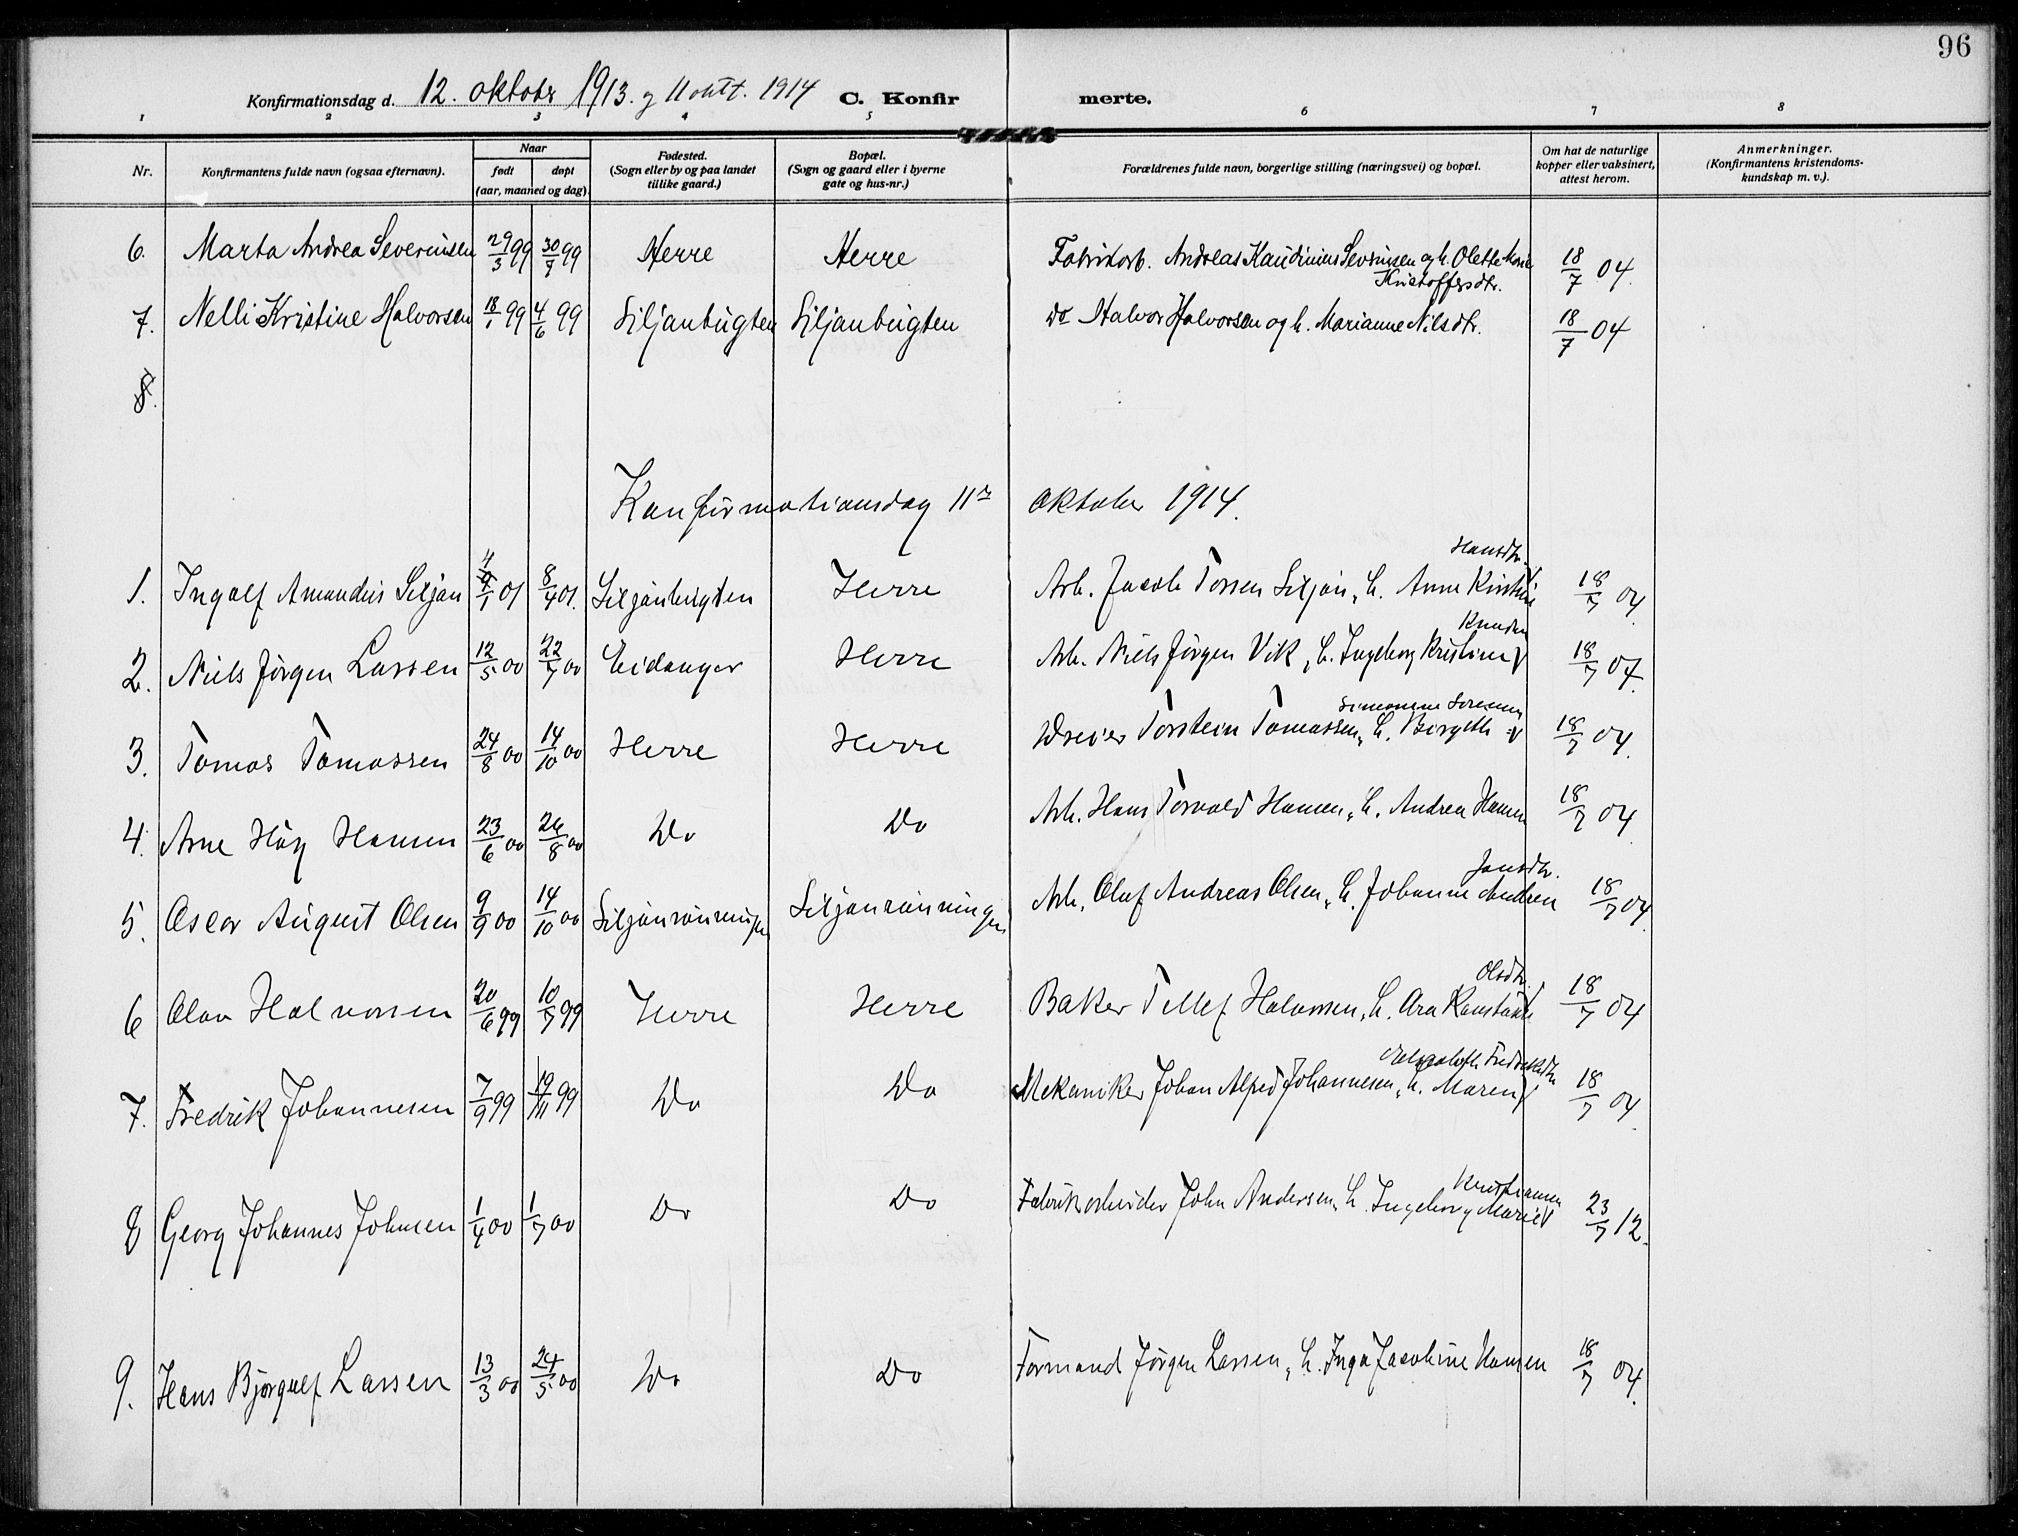 96
Konfirmationsdag d. 12. oktober 1913. og 11 oktt. 1914 C. Konfirmerte.
1 2 3 4 5 6 7 8
Nr. Konfirmantens fulde navn (ogsaa efternavn). Naar født døpt (aar, maaned og dag). Fødested. (Sogn eller by og paa landet tillike gaard.) Bopæl. (Sogn og gaard eller i byerne gate og hus-nr.) Forældrenes fulde navn, borgerlige stilling (næringsvei) og bopæl. Om hat de naturlige kopper eller vaksinert, attest herom. Anmerkninger. (Konfirmantens kristendoms-kundskap m. v.).
6. Marta Andrea Severinsen 29/3 99 30/7 99 Herre Herre Fabrikarb. Andreas Kaudinius Severinsen og h. Olette Marie 18/7 04.
Kristoffersdtr.
7. Nelli Kristine Halvorsen 18/1 99 4/6 99 Siljanbugten Siljanbugten do Halvor Halvorsen og h. Marianne Nilsdtr. 18/7 04
8.
Konfirmationsdag 11te oktober 1914.
Hansdtr.
1. Ingolf Amandus Siljan 4/1 01 8/4 01. Siljanbugten Herre Arb. Jacob Torsen Siljan, h. Anne Kirstine 18/7 04.
Knudsen
2. Niels Jörgen Larsen 12/5 00 22/7 00 Eidanger Herre Arb. Niels Jörgen Vik, h. Ingeborg Kristine 18/7 04.
Simonine Sorensen
3. Tomas Tomassen 24/8 00 14/10 00 Herre Herre Dreier Torstein Tomassen, h. Borgith 18/7 04.
4. Arne Höy Hansen 23/6 00 26/8 00 Do Do Arb. Hans Torvald Hansen, h. Andrea Hansen 18/7 04
Jansdtr.
5. Oscar August Olsen 9/9 00 14/10 00 Siljanrönningen Siljanrönningen Arb. Oluf Andreas Olsen, h. Johanne Andrea 18/7 04.
Olsdtr.
6 Olav Halvorsen 20/6 99 10/7 99 Herre Herre Baker Tellef Halvorsen, h. Ara Konstanse 18/7 04
Fredriksdtr
7. Fredrik Johannesen 7/9 99 19/11 99 Do Do Mekaniker Johan Alfred Johannesen, h. Maren 18/7 04.
Kristiansen
8 Georg Johannes Johnsen 1/4 00 1/7 00 Do Do Fabrikarbeider John Andersen, h. Ingeborg Marie 23/7 12.
9. Hans Bjorgulf Larsen 13/3 00 24/5 00 Do Do Formand Jörgen Larsen, h. Inga Jacobine Hansen 18/7 04.